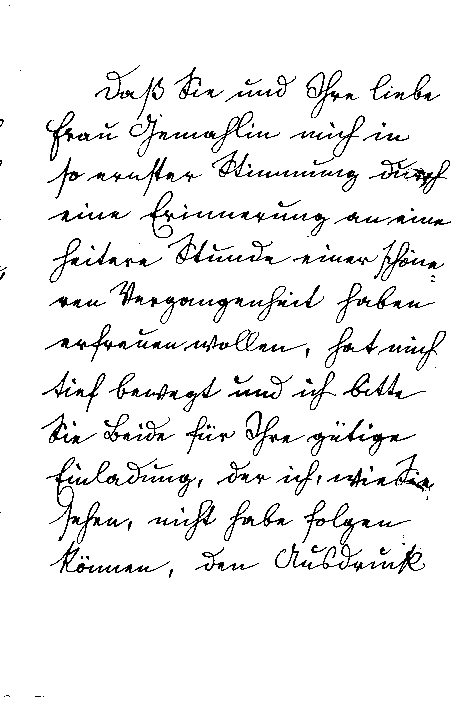 Daß Sie und Ihre liebe
Frau Gemahlin mich in
so ernster Stimmung durch
eine Erinnerung an eine
heitere Stunde einer schöne-
ren Vergangenheit haben
erfreuen wollen, hat mich
tief bewegt und ich bitte
Sie Beide für Ihre gütige
Einladung, der ich, wie Sie
sehen, nicht habe folgen
können, den Ausdruck